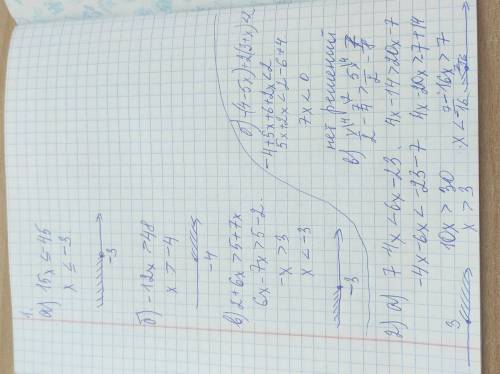 1.
а) 15x ≤ -45
x ≤ -3
-3
б) -12x > 48
x > -4
-4
в) 2+6x > 5+7x
6x-7x > 5-2
-x > 3
x < -3
-3
2) а) 7-4x < 6x-23
-4x-6x < -23-7
10x > 30
x > 3
3
б) -(4-5x)+2(3+x)<2
-4+5x+6+2x<2
5x+2x<2-6+4
7x<0
нет решений
в)
4x-14>20x-7
4x-20x>7+14
-16x>7